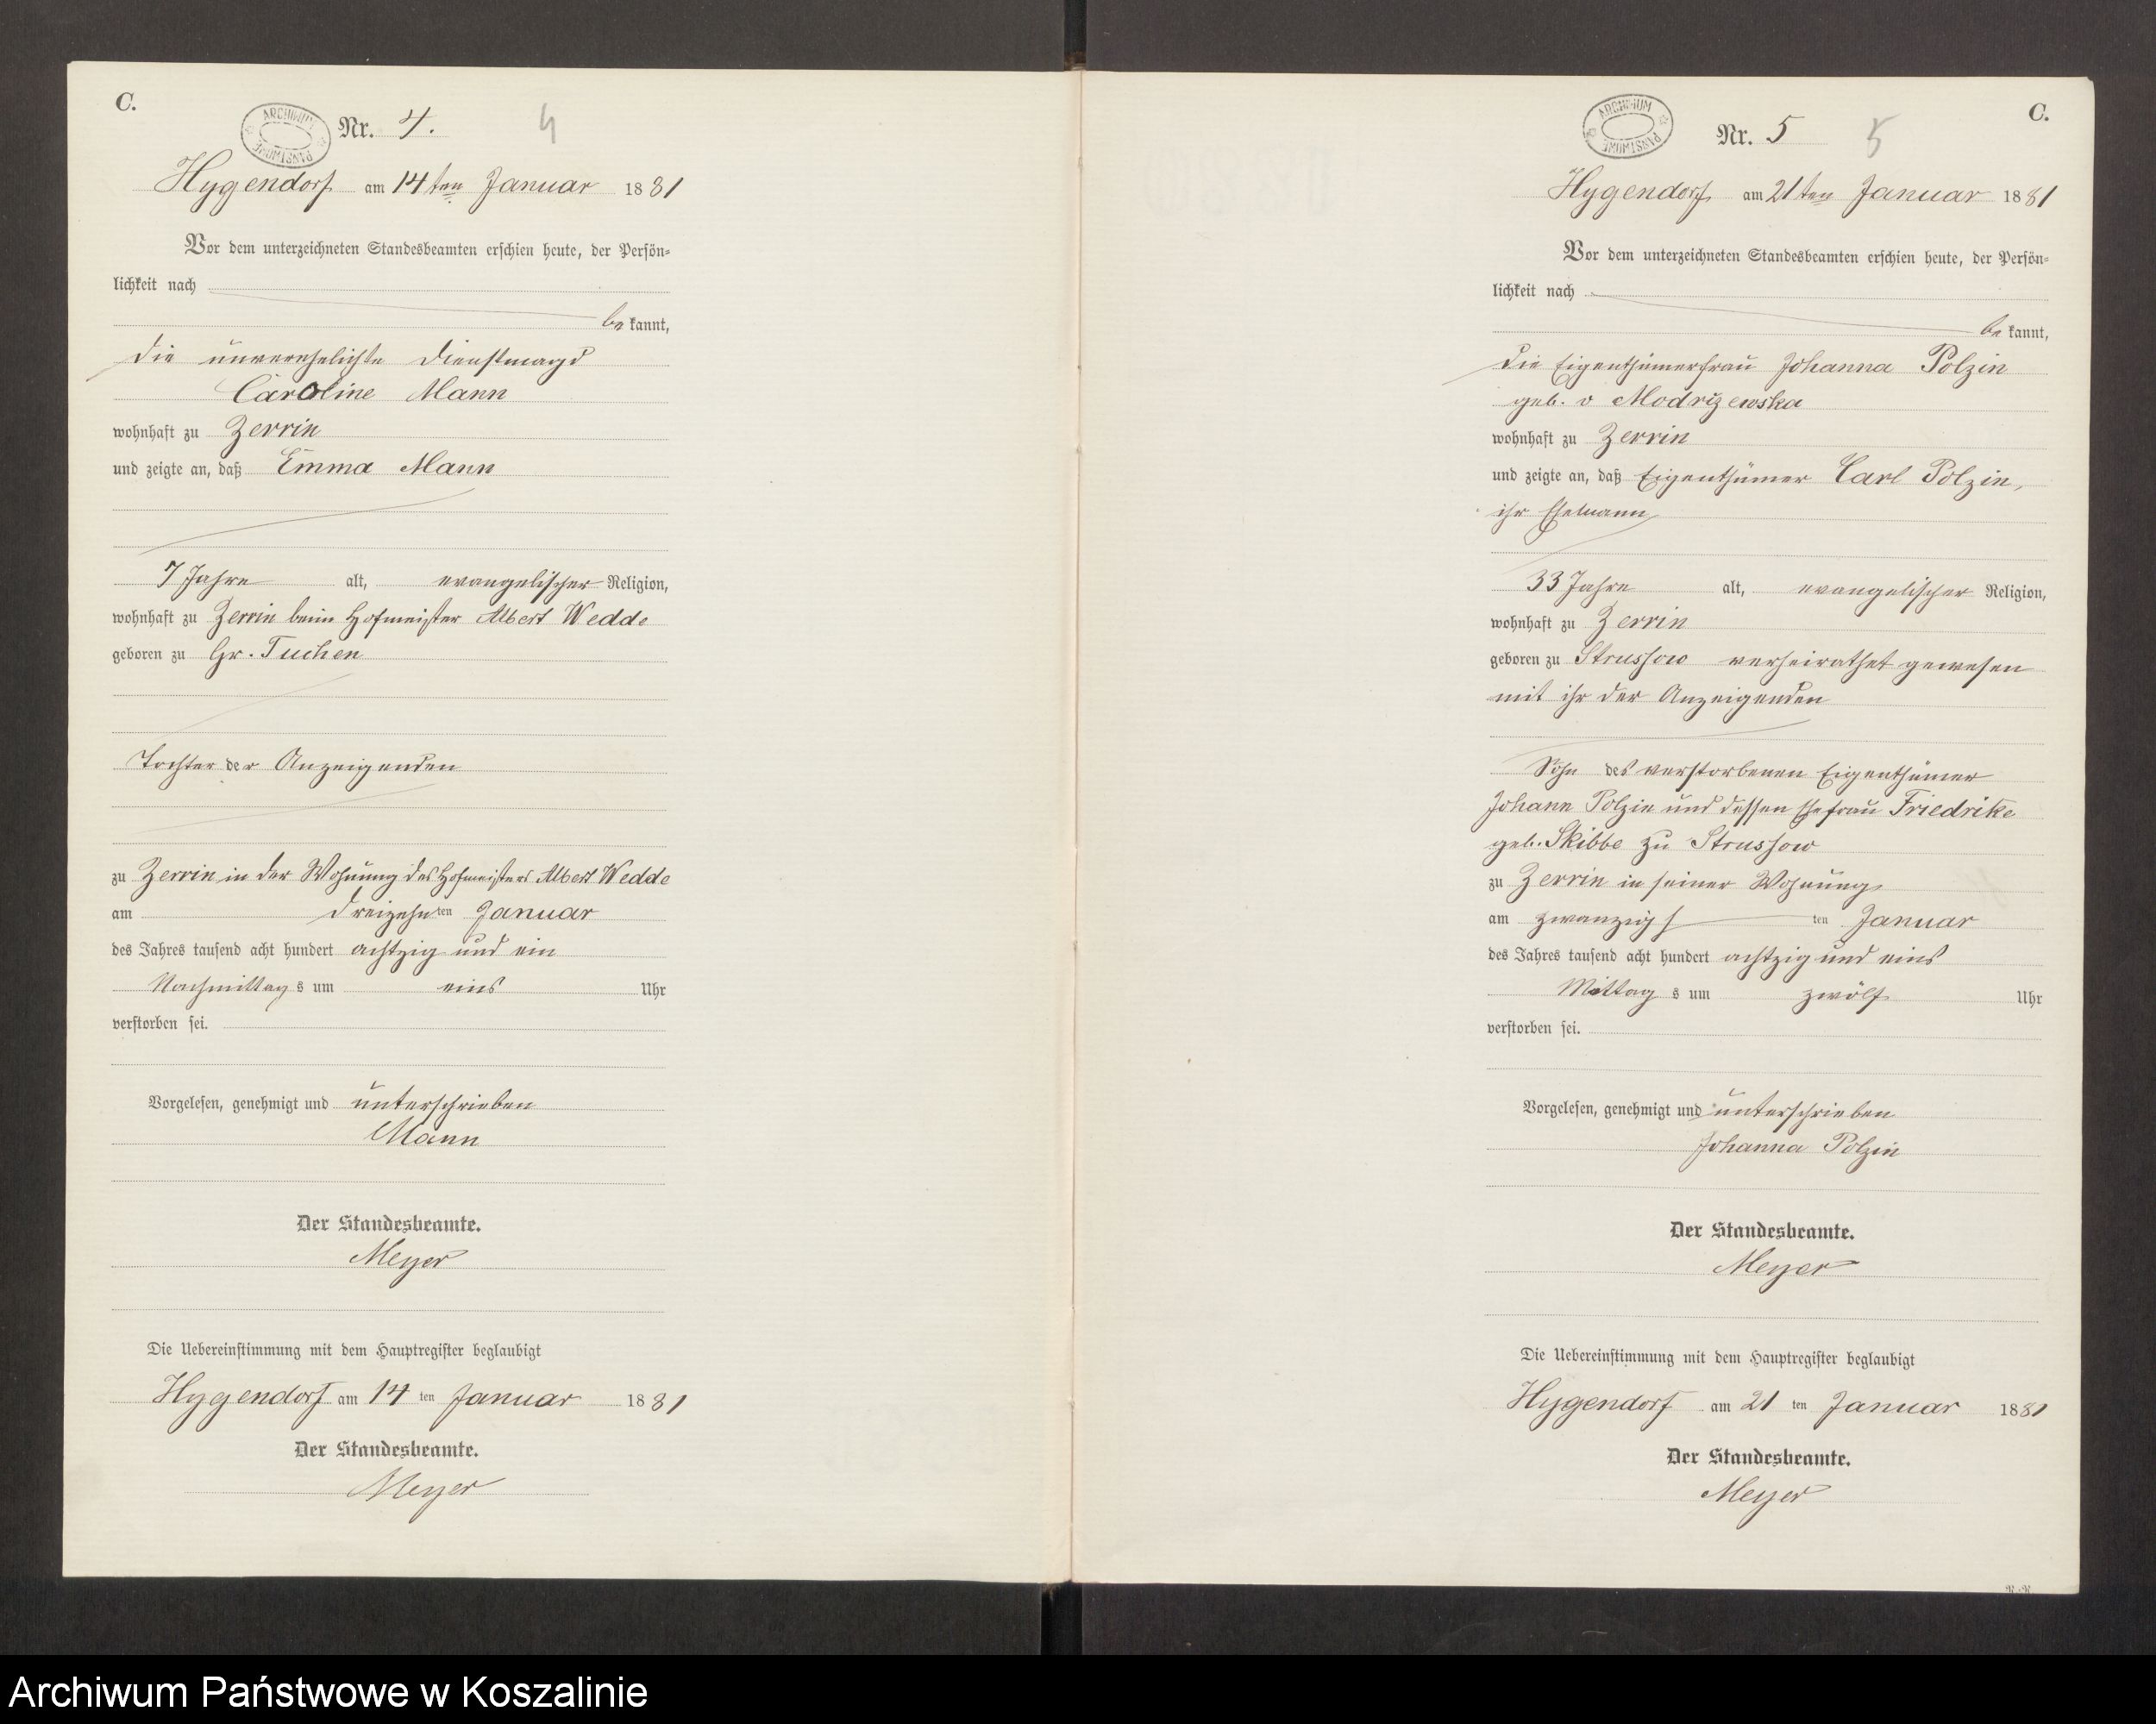 C.
ARCHIWUM PAŃSTWOWE
Nr. 4. 4
Hygendorf am 14ten Januar 1881
Vor dem unterzeichneten Standesbeamten erschien heute, der Persön-
lichkeit nach
be kannt,
die unverehelichte Dienstmagd
Caroline Mann
wohnhaft zu Zerrin
und zeigte an, daß Emma Mann
7 Jahre alt, evangelischer Religion,
wohnhaft zu Zerrin beim Hofmeister Albert Wedde
geboren zu Gr. Tuchen
Tochter der Anzeigenden
zu Zerrin in der Wohnung des Hofmeisters Albert Wedde
am dreizehn ten Januar
des Jahres tausend acht hundert achtzig und ein
Nachmittag s um eins Uhr
verstorben sei.
Vorgelesen, genehmigt und unterschrieben
Mann
Der Standesbeamte.
Meyer
Die Uebereinstimmung mit dem Hauptregister beglaubigt
Hygendorf am 14 ten Januar 1881
Der Standesbeamte.
Meyer
C.
ARCHIWUM PAŃSTWOWE
Nr. 5 5
Hygendorf am 21ten Januar 1881
Vor dem unterzeichneten Standesbeamten erschien heute, der Persön-
lichkeit nach
be kannt,
die Eigenthümerfrau Johanna Polzin
geb. v Modrizewska
wohnhaft zu Zerrin
und zeigte an, daß Eigenthümer Carl Polzin,
ihr Ehemann
33 Jahre alt, evangelischer Religion,
wohnhaft zu Zerrin
geboren zu Strussow verheirathet gewesen
mit ihr der Anzeigenden
Sohn des verstorbenen Eigenthümer
Johann Polzin und dessen Ehefrau Friedrike
geb. Skibbe zu Strussow
zu Zerrin in seiner Wohnung
am zwanzigs ten Januar
des Jahres tausend acht hundert achtzig und eins
Mittag s um zwölf Uhr
verstorben sei.
Vorgelesen, genehmigt und unterschrieben
Johanna Polzin
Der Standesbeamte.
Meyer
Die Uebereinstimmung mit dem Hauptregister beglaubigt
Hygendorf am 21 ten Januar 1881
Der Standesbeamte.
Meyer
Archiwum Państwowe w Koszalinie